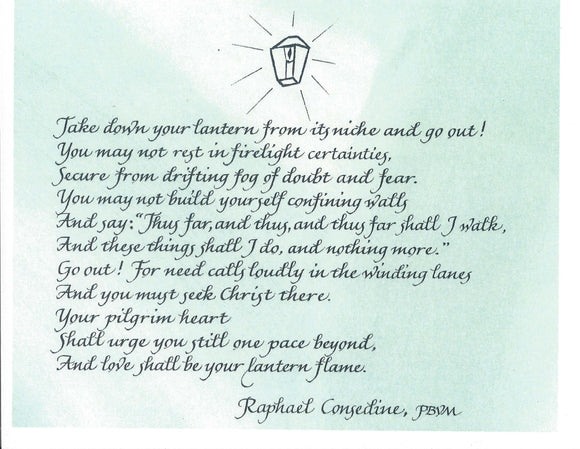 Take down your lantern from its niche and go out!
You may not rest in firelight certainties,
Secure from drifting fog of doubt and fear.
You may not build yourself confining walls
And say: "Thus far, and thus, and thus far shall I walk,
And these things shall I do, and nothing more."
Go out! For need calls loudly in the winding lanes
And you must seek Christ there.
Your pilgrim heart
Shall urge you still one pace beyond,
And love shall be your lantern flame.
Raphael Consedine, PBVM